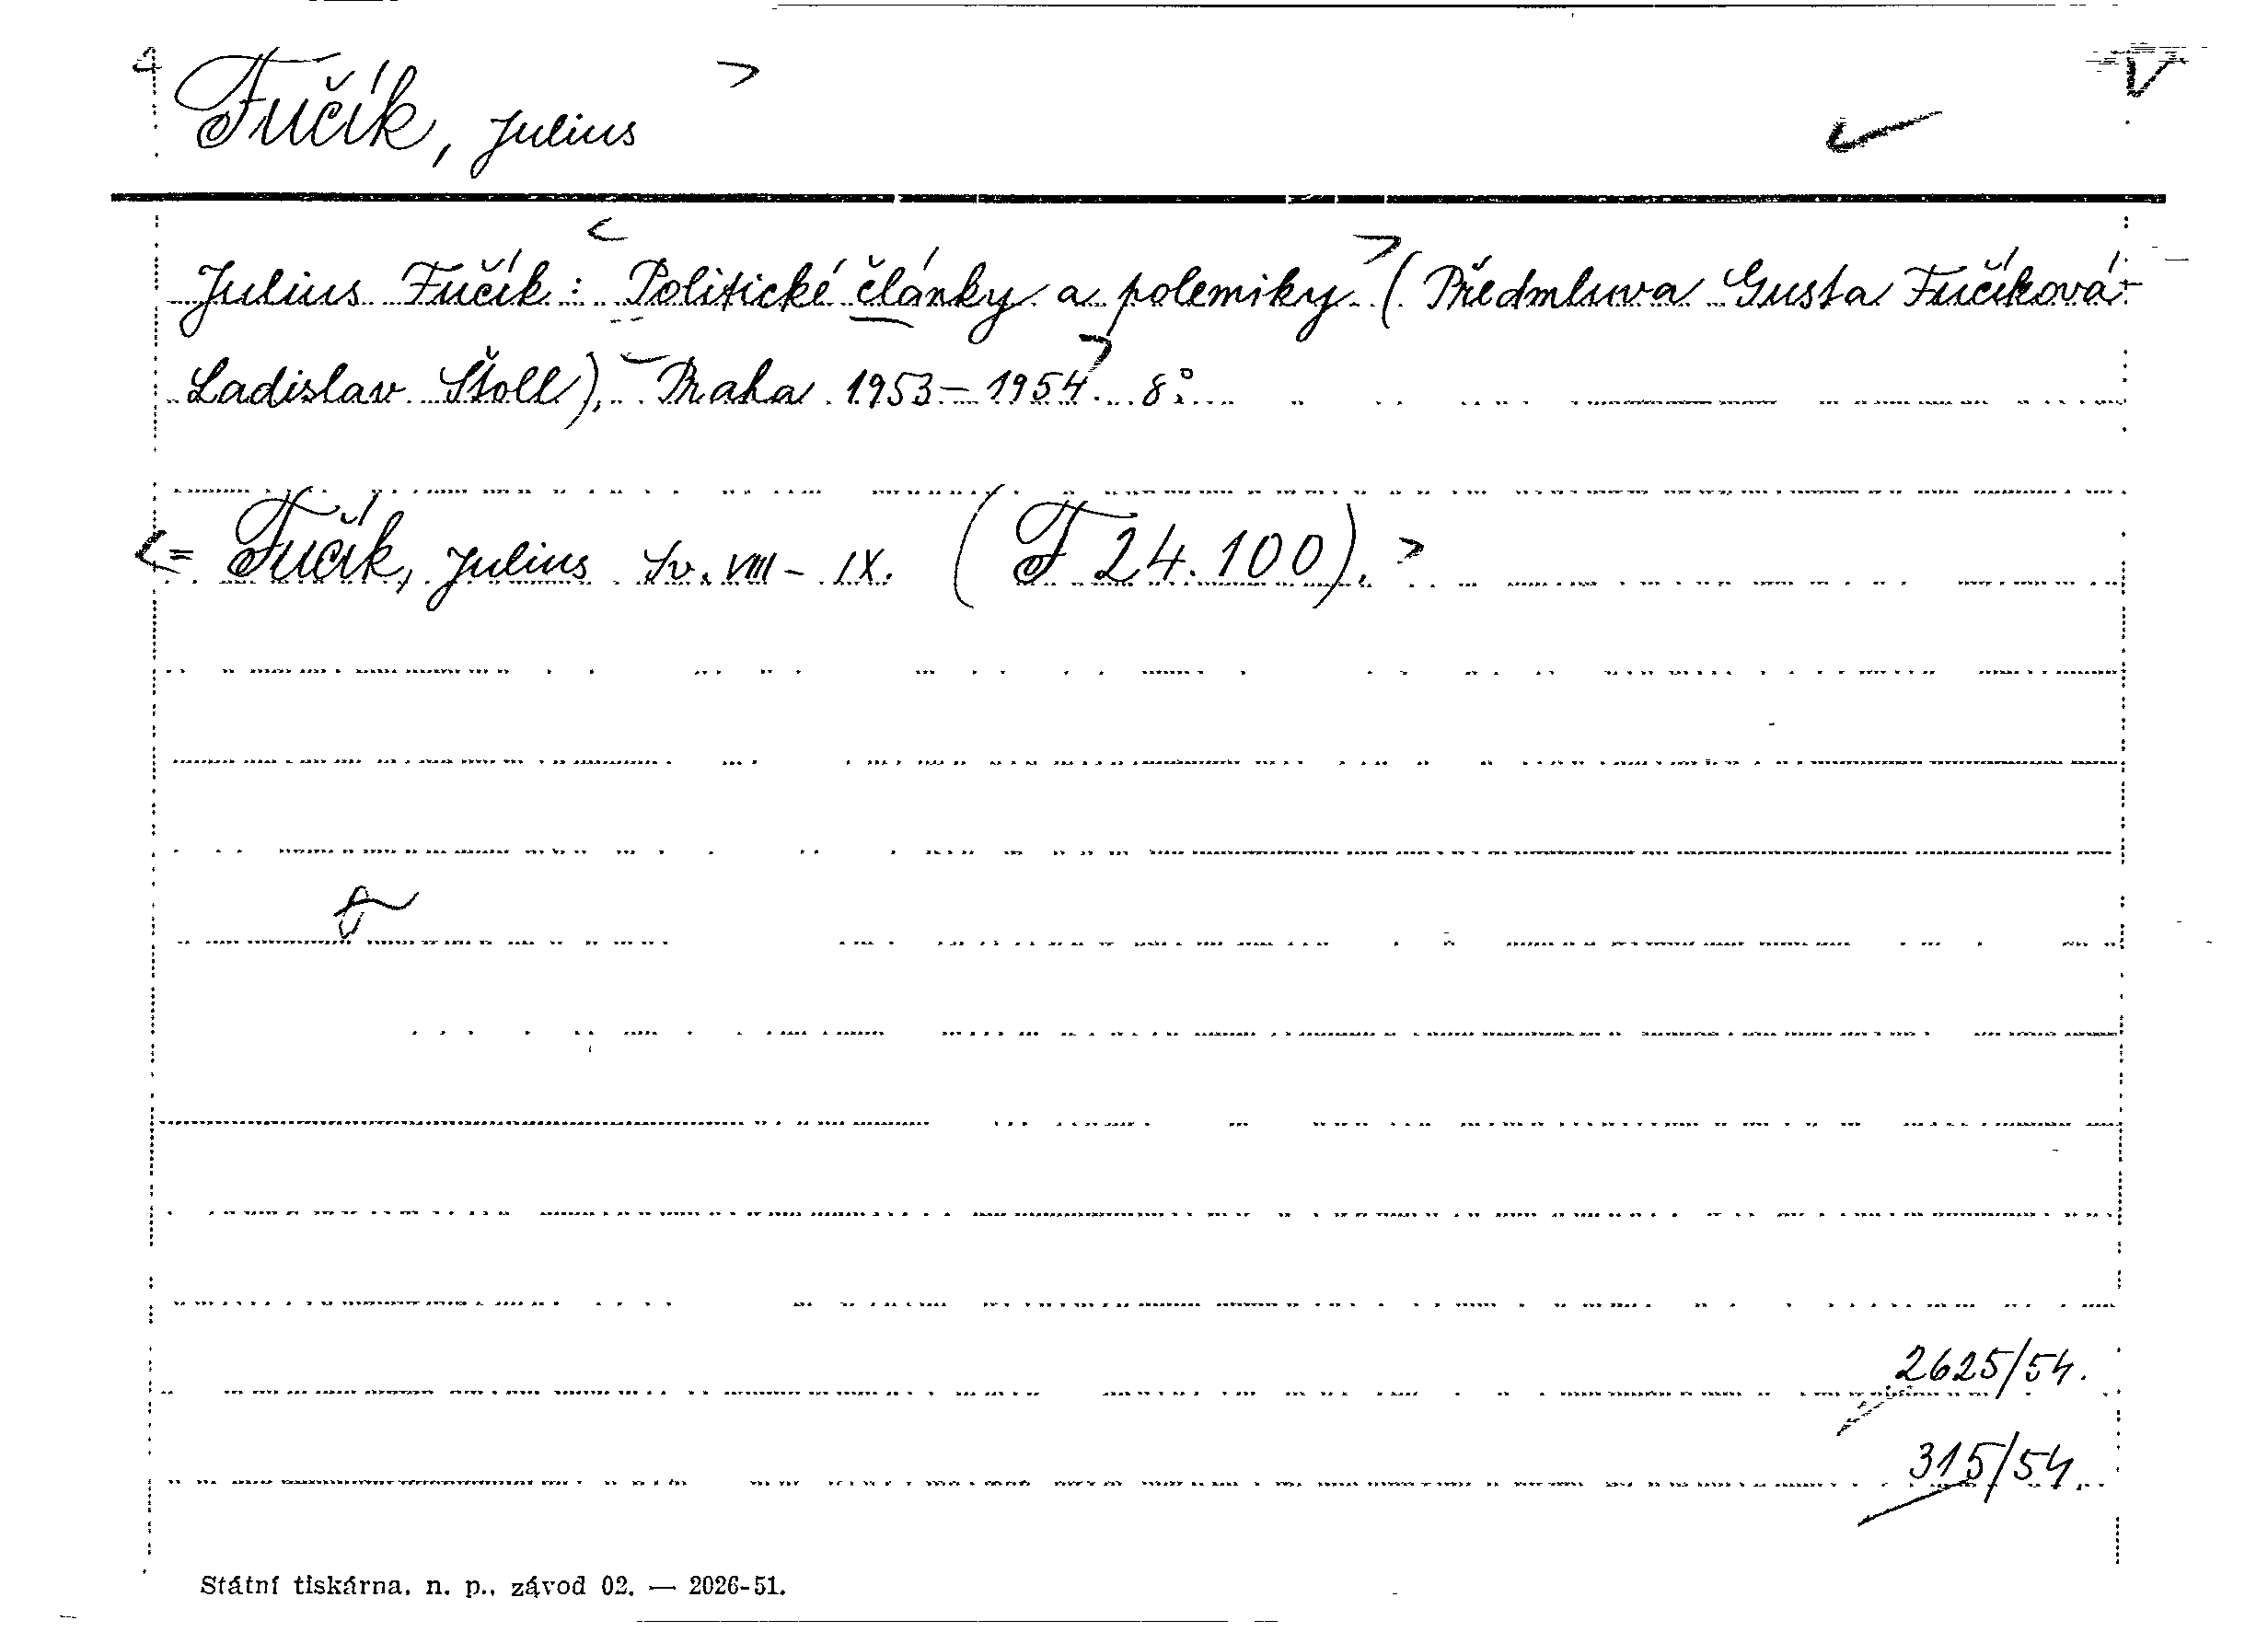 Fučík, Julius
Julius Fučík: Politické články a polemiky (Předmluva Gusta Fučíková-
Ladislav Štoll). Praha 1953-1954. 8°.
= Fučík, Julius Sv. VIII - IX. (F 24.100).
2625/54.
315/54.
Státní tiskárna, n. p., závod 02. — 2026-51.